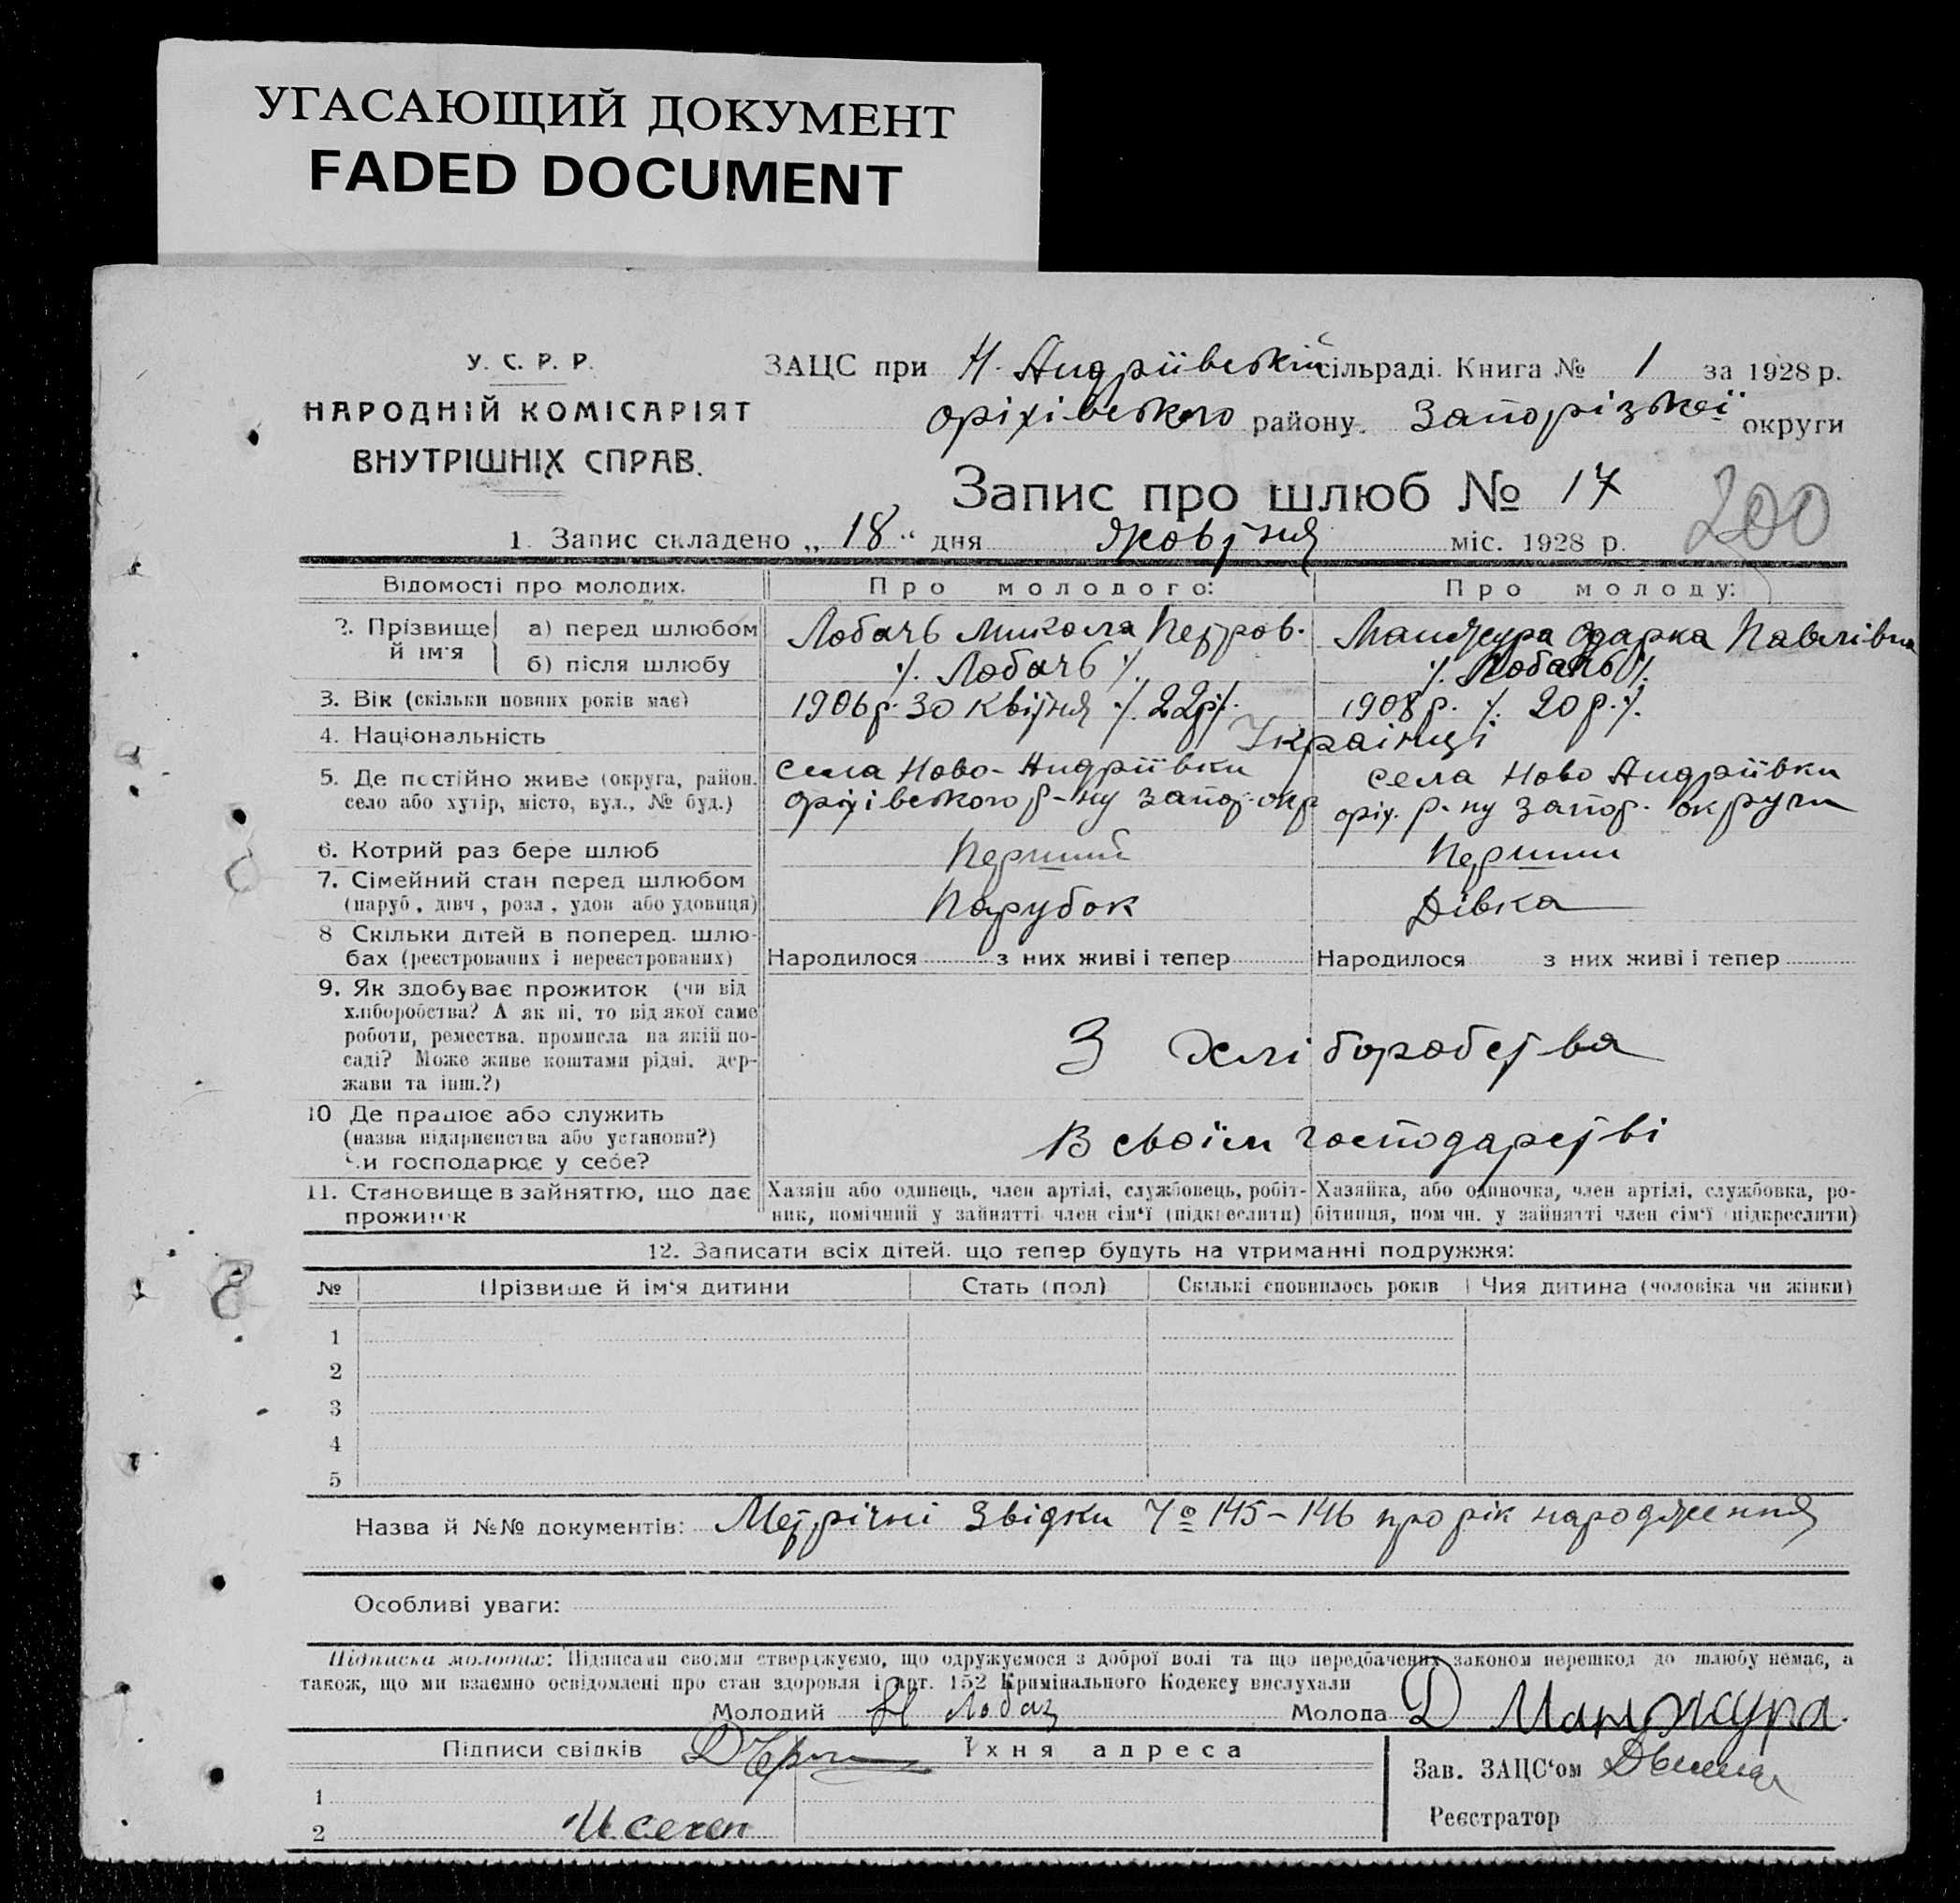 УГАСАЮЩИЙ ДОКУМЕНТ
FADED DOCUMENT
У. С. Р. Р.
НАРОДНІЙ КОМІСАРІЯТ
ВНУТРІШНІХ СПРАВ.
ЗАЦС при Н. Андріївській сільраді. Книга № 1 за 1928 р.
оріхівського району. Запорізької округи
Запис про шлюб № 17
200
1. Запис складено „ 18 “ дня жовтня міс. 1928 р.
Відомості про молодих. Про молодого: Про молоду:
2. Прізвище й ім'я а) перед шлюбом Лобачь Микола Петров. Манжура Одарка Павлівна
б) після шлюбу ./. Лобачь ./. ./. Лобачь ./.
3. Вік (скільки повних років має) 1906 р. 30 квітня ./. 22 р ./. 1908 р. ./. 20 р. ./.
4. Національність Українці
5. Де постійно живе (округа, район, села Ново-Андріївки села Ново Андріївки
село або хутір, місто, вул., № буд.) оріхівського р-ну запор. окр оріх. р-ну запор. округи
6. Котрий раз бере шлюб Перший Перший
7. Сімейний стан перед шлюбом
(паруб., дівч., розл., удов. або удовиця) Парубок Дівка
8 Скільки дітей в поперед. шлю-
бах (реєстрованих і нереєстрованих) Народилося з них живі і тепер Народилося з них живі і тепер
9. Як здобуває прожиток (чи від
хліборобства? А як ні, то від якої саме
роботи, ремества, промисла на якій по-
саді? Може живе коштами рідні, дер-
жави та інш.?)
З хліборобства
10 Де працює або служить
(назва підприємства або установи?)
Чи господарює у себе?
В своїм господарстві
11. Становище в зайняттю, що дає Хазяїн або одинець, член артілі, службовець, робіт- Хазяйка, або одиночка, член артілі, службовка, ро-
прожиток ник, помічний у зайнятті член сім'ї (підкреслити) бітниця, помічн. у зайнятті член сім'ї (підкреслити)
12. Записати всіх дітей, що тепер будуть на утриманні подружжя:
№ Прізвище й ім'я дитини Стать (пол) Скількі сповнилось років Чия дитина (чоловіка чи жінки)
1
2
3
4
5
Назва й №№ документів: Метрічні звідки № 145-146 про рік народження
Особливі уваги:
Підписка молодих: Підписами своїми стверджуємо, що одружуємося з доброї волі та що передбачених законом перешкод до шлюбу немає, а
також, що ми взаємно освідомлені про стан здоровля і арт. 152 Кримінального Кодексу вислухали
Молодий Н Лобач Молода Д Манжура.
Підписи свідків Їхня адреса
Зав. ЗАЦС'ом
1
Реєстратор
2